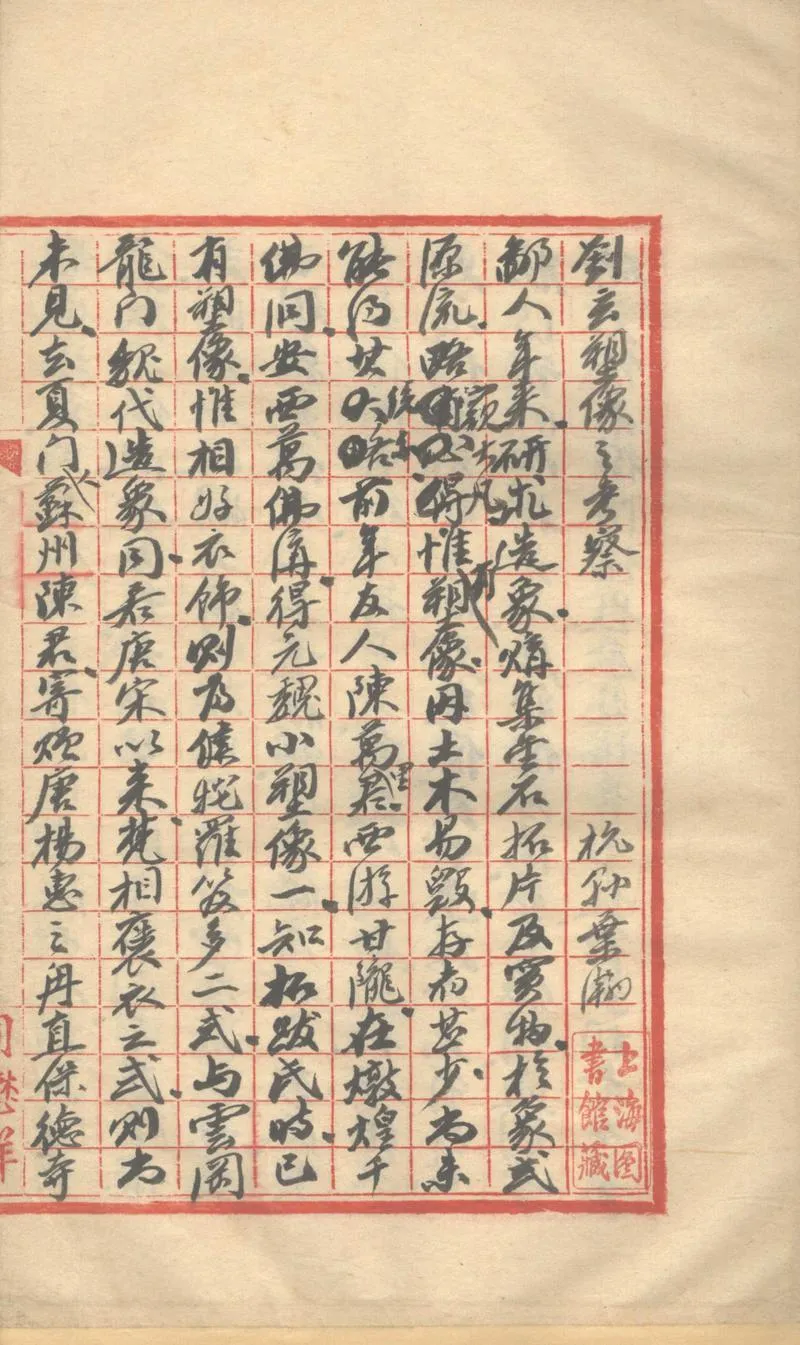 劉玄塑像之考察 杭州葉瀚
鄙人年來研求造象蒐集金石拓片及實物於象式
源流略觀大凡惟塑像因土木易毀存者甚少尚未
能得其大略前年友人陳萬里君西游甘隴在燉煌千
佛洞安西萬佛溝得元魏小塑像一知拓跋氏時已
有塑像惟相好衣飾則為犍陀羅笈多二式与雲岡
龍门魏代造象同若唐宋以来梵相褒衣之式則尚
未見去夏门人蘇州陳君寄贈唐楊惠之甪直保德寺
上海图書館藏